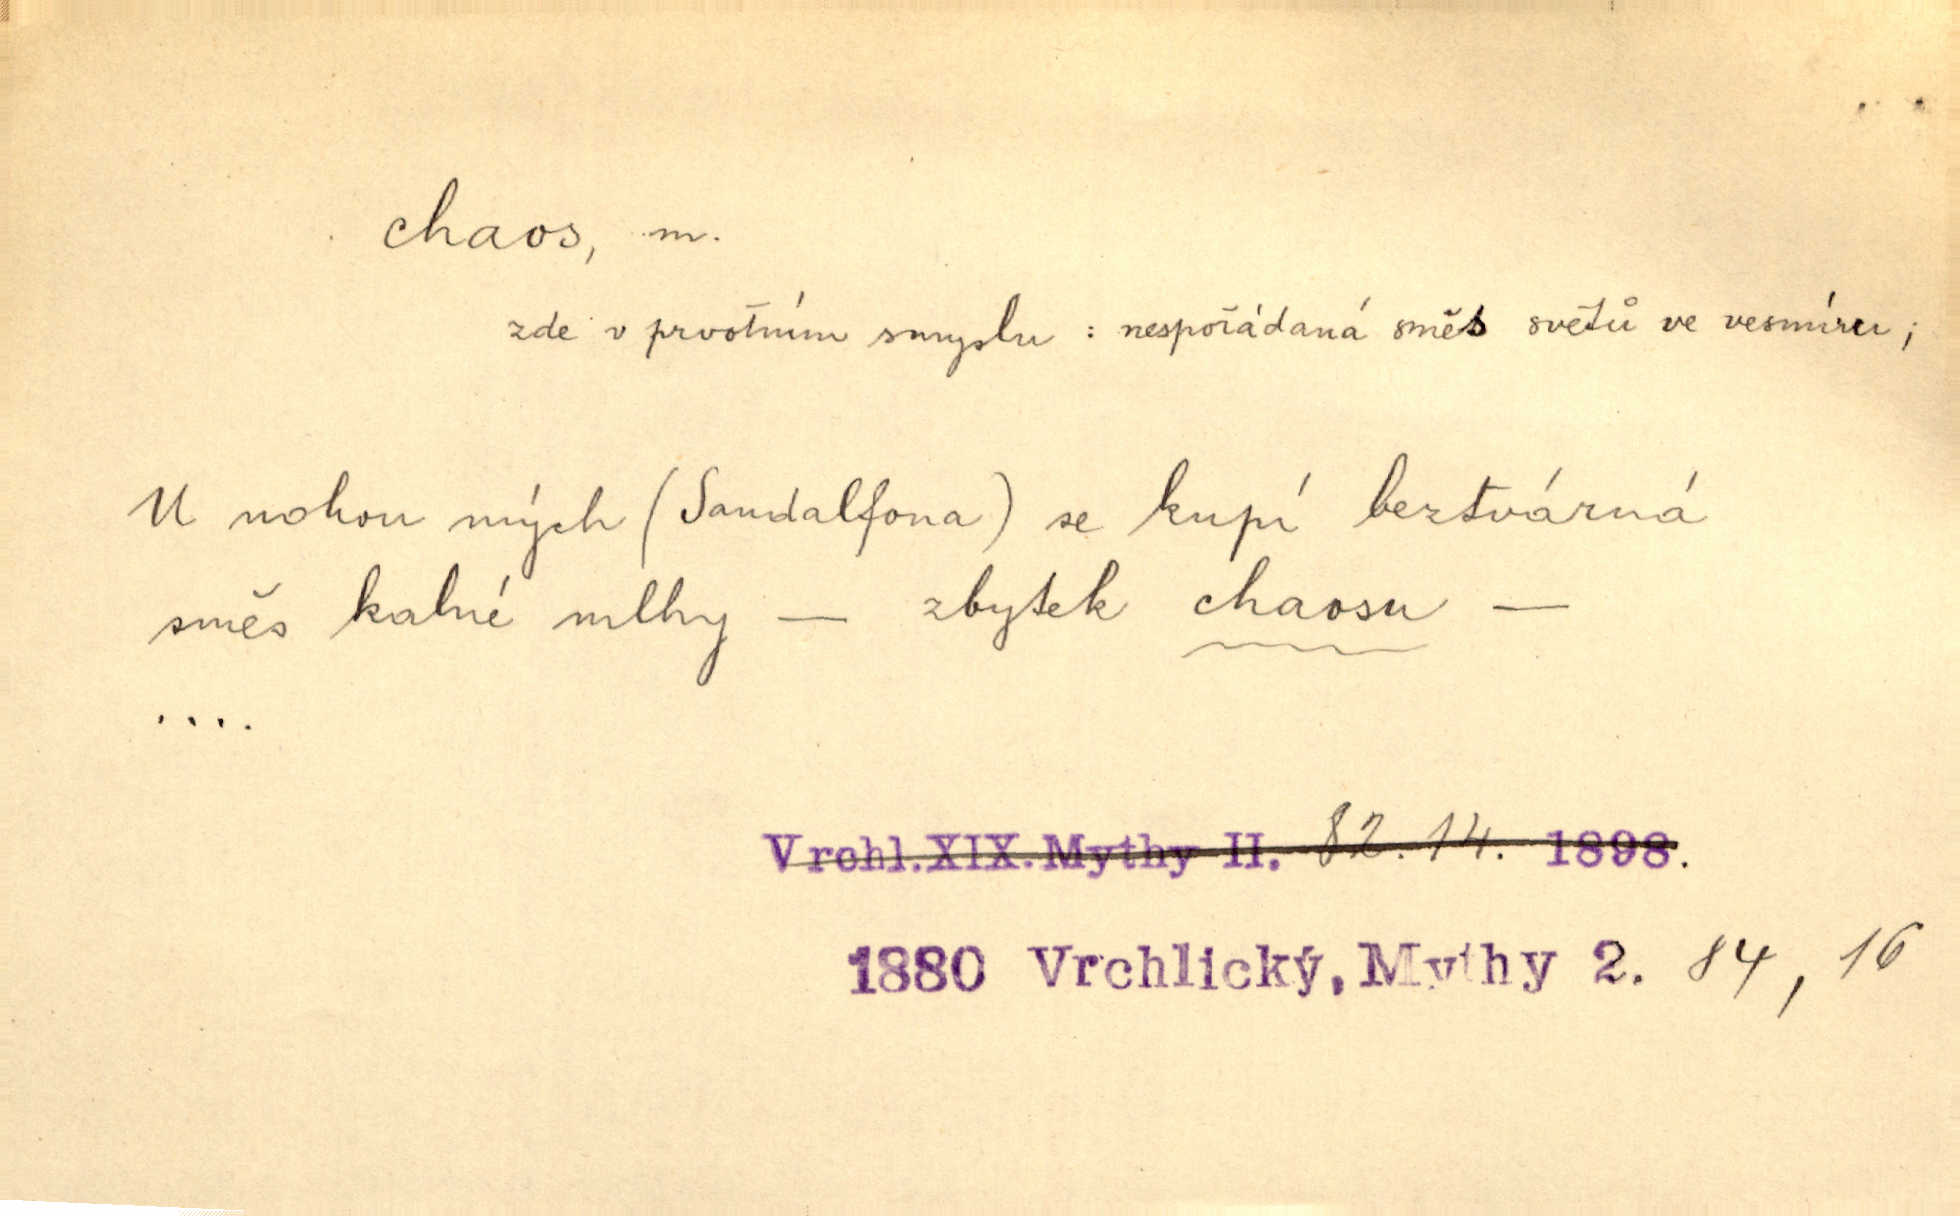 chaos, m.
zde v prvotním smyslu : nespořádaná směs světů ve vesmíru ;
U nohou mých (Sandalfona) se kupí beztvárná
směs kalné mlhy — zbytek chaosu —
....
Vrchl.XIX.Mythy II. 82.14. 1898.
1880 Vrchlický, Mythy 2. 84, 16